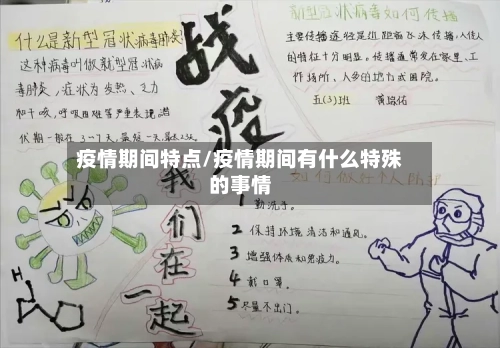 什么是新型冠状病毒肺炎
这种病毒叫做新型冠状病
毒肺炎,症状为发热、乏力
和干咳,呼吸困难等严重表现,潜
伏期一般在3—7天,最短一天,最长
战疫
我们在一起
新型冠状病毒如何传播
主要传播途径是近距离飞沫传播,人传人
的特征十分明显。传播通常发生在家里、工
作场所、人多的地方或医院。
五(3)班 黄
疫情期间特点/疫情期间有什么特殊
的事情
如何做好个人防护
1 勤洗手。
2 保持环境清洁和通风。
3 增强体质和免疫力。
4 戴口罩。
5 尽量不出门。
H